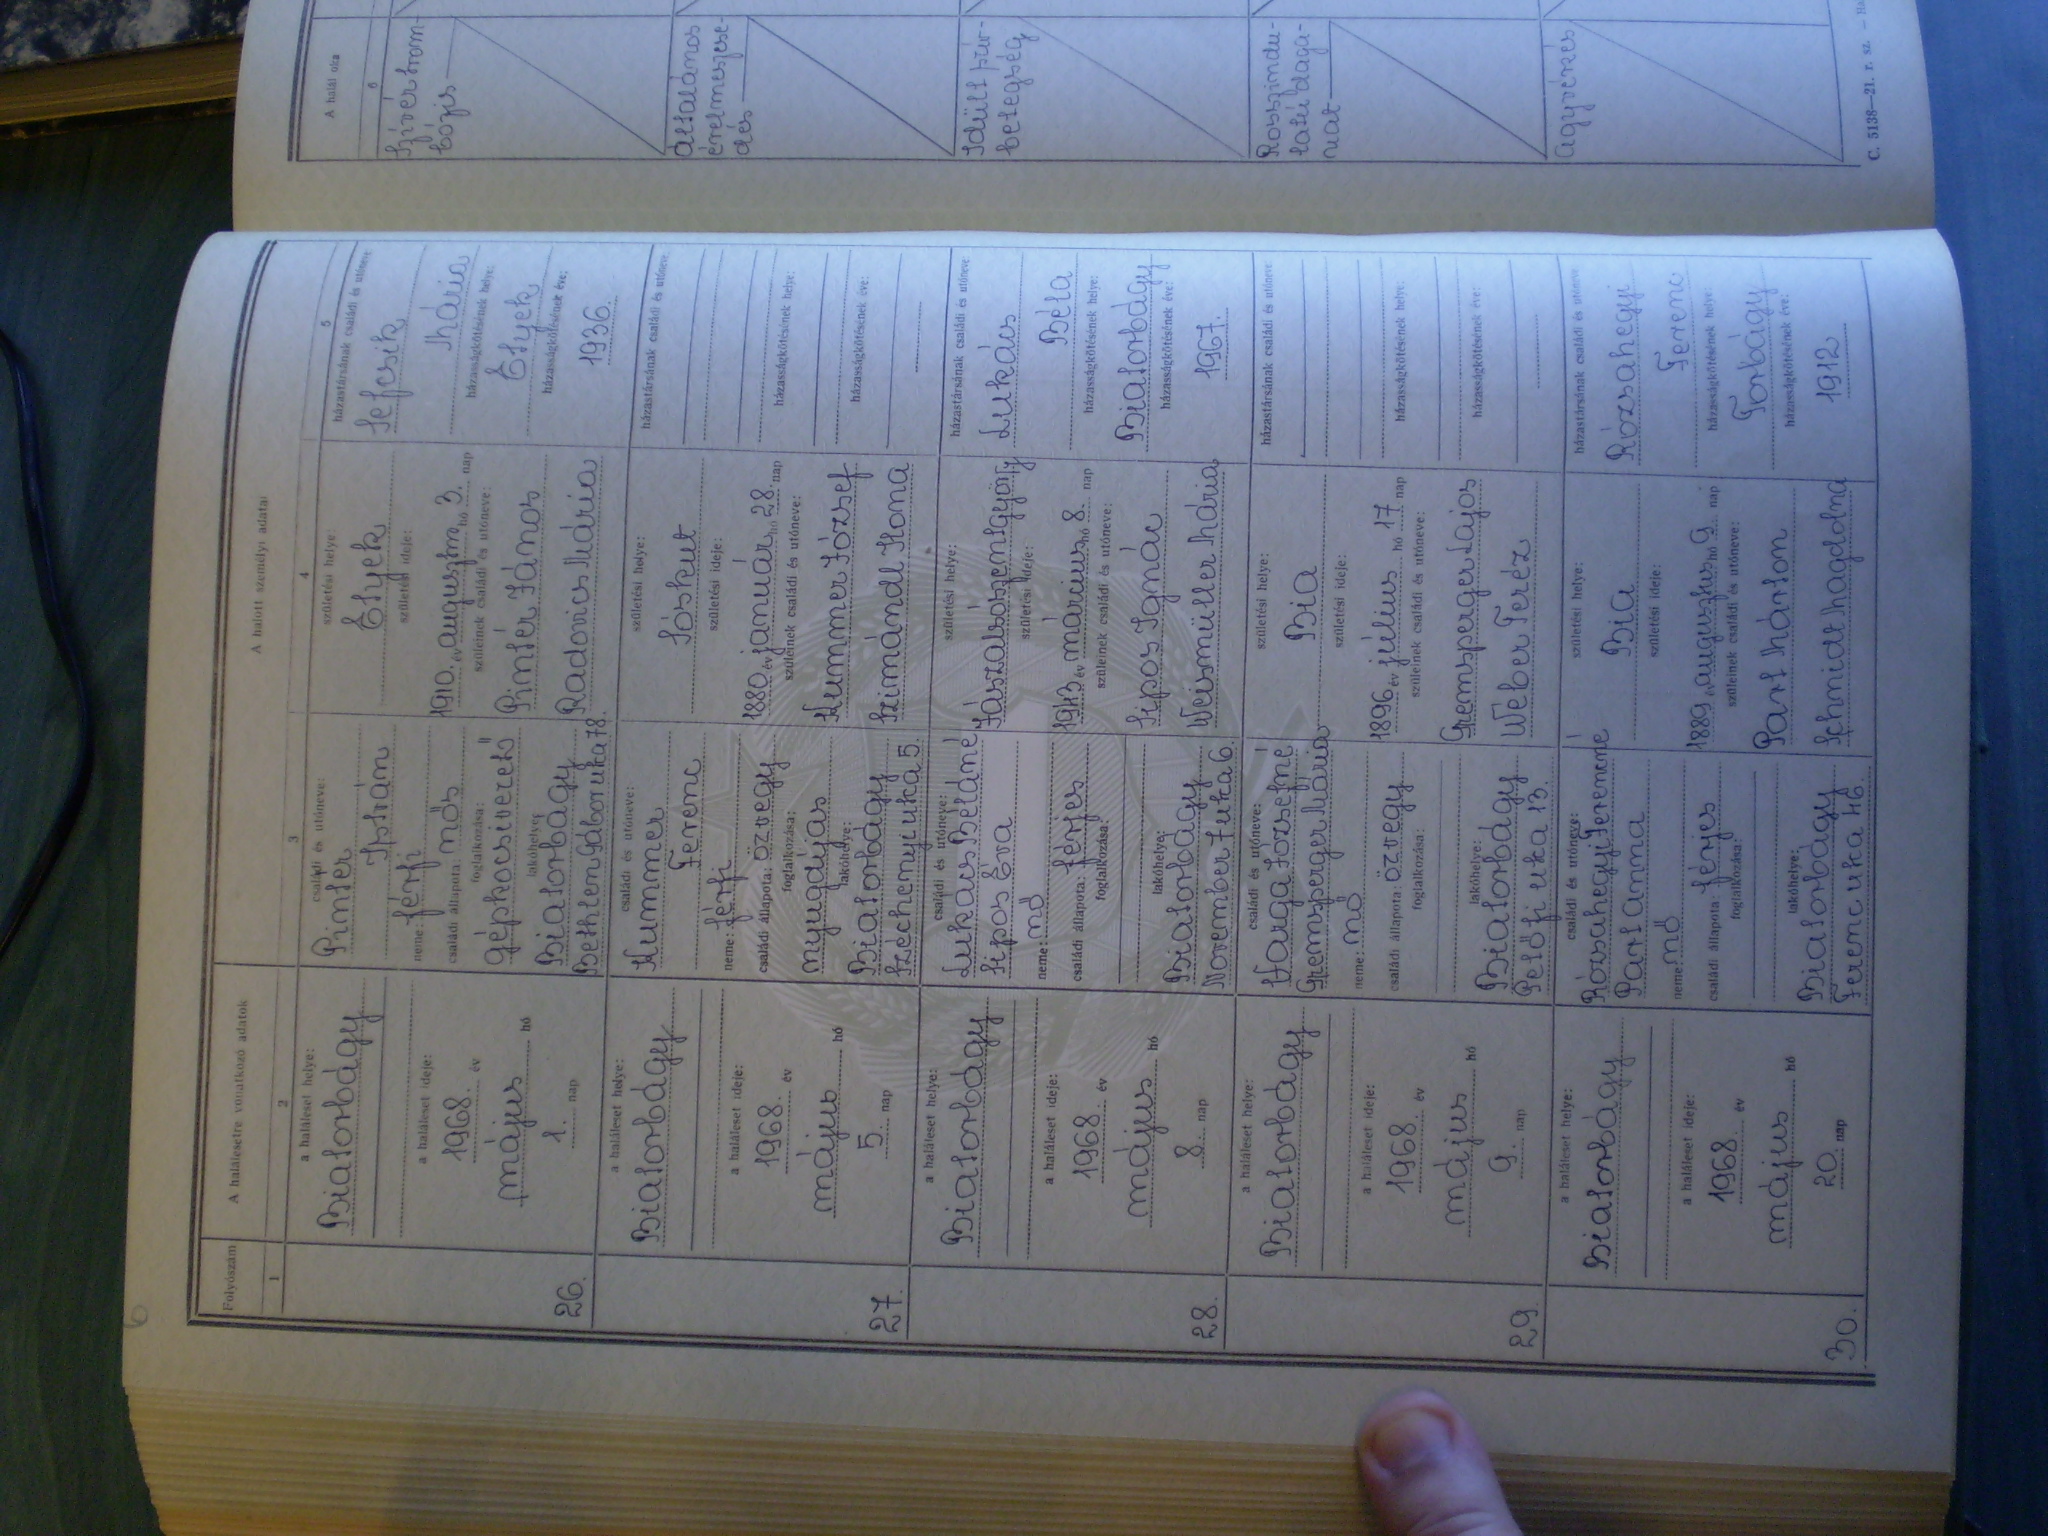 6
Folyószám
A halálesetre vonatkozó adatok
A halott személyi adatai
A halál oka
1
2
3
4
5
6
26.
a haláleset helye:
Biatorbágy
a haláleset ideje:
1968. év
május hó
1. nap
családi és utóneve:
Pintér
István
neme: férfi
családi állapota: nős
foglalkozása:
gépkocsivezető
lakóhelye:
Biatorbágy
Bethlen Gábor utca 78.
születési helye:
Etyek
születési ideje:
1910. év augusztus hó 3. nap
szüleinek családi és utóneve:
Pintér János
Radovics Mária
házastársának családi és utóneve:
Sefcsik
Mária
házasságkötésének helye:
Etyek
házasságkötésének éve:
1936.
Szívértrom-
bózis
27.
a haláleset helye:
Biatorbágy
a haláleset ideje:
1968. év
május hó
5. nap
családi és utóneve:
Kummer
Ferenc
neme: férfi
családi állapota: özvegy
foglalkozása:
nyugdíjas
lakóhelye:
Biatorbágy
Széchenyi utca 5.
születési helye:
Sóskut
születési ideje:
1880. év január hó 28. nap
szüleinek családi és utóneve:
Kummer József
Szimándl Ilona
házastársának családi és utóneve:
házasságkötésének helye:
házasságkötésének éve:
Általános
érelmeszese-
dés
28.
a haláleset helye:
Biatorbágy
a haláleset ideje:
1968. év
május hó
8. nap
családi és utóneve:
Lukács Béláné
Sipos Éva
neme: nő
családi állapota: férjes
foglalkozása:
lakóhelye:
Biatorbágy
November 7 utca 6.
születési helye:
Jászalsószentgyörgy
születési ideje:
1943. év március hó 8. nap
szüleinek családi és utóneve:
Sipos Ignác
Weismüller Mária
házastársának családi és utóneve:
Lukács
Béla
házasságkötésének helye:
Biatorbágy
házasságkötésének éve:
1967.
Idült szív-
betegség
29.
a haláleset helye:
Biatorbágy
a haláleset ideje:
1968. év
május hó
9. nap
családi és utóneve:
Varga Józsefné
Gremsperger Mária
neme: nő
családi állapota: özvegy
foglalkozása:
lakóhelye:
Biatorbágy
Petőfi utca 13.
születési helye:
Bia
születési ideje:
1896. év július hó 17 nap
szüleinek családi és utóneve:
Gremsperger Lajos
Weber Teréz
házastársának családi és utóneve:
házasságkötésének helye:
házasságkötésének éve:
Rosszindu-
latú daga-
nat
30.
a haláleset helye:
Biatorbágy
a haláleset ideje:
1968. év
május hó
20. nap
családi és utóneve:
Rózsahegyi Ferencné
Parl Anna
neme: nő
családi állapota: férjes
foglalkozása:
lakóhelye:
Biatorbágy
Ferenc utca 46.
születési helye:
Bia
születési ideje:
1889. év augusztus hó 9. nap
szüleinek családi és utóneve:
Parl Márton
Schmidt Magdolna
házastársának családi és utóneve:
Rózsahegyi
Ferenc
házasságkötésének helye:
Torbágy
házasságkötésének éve:
1912
Agyvérzés
C. 5138—21. r. sz. —